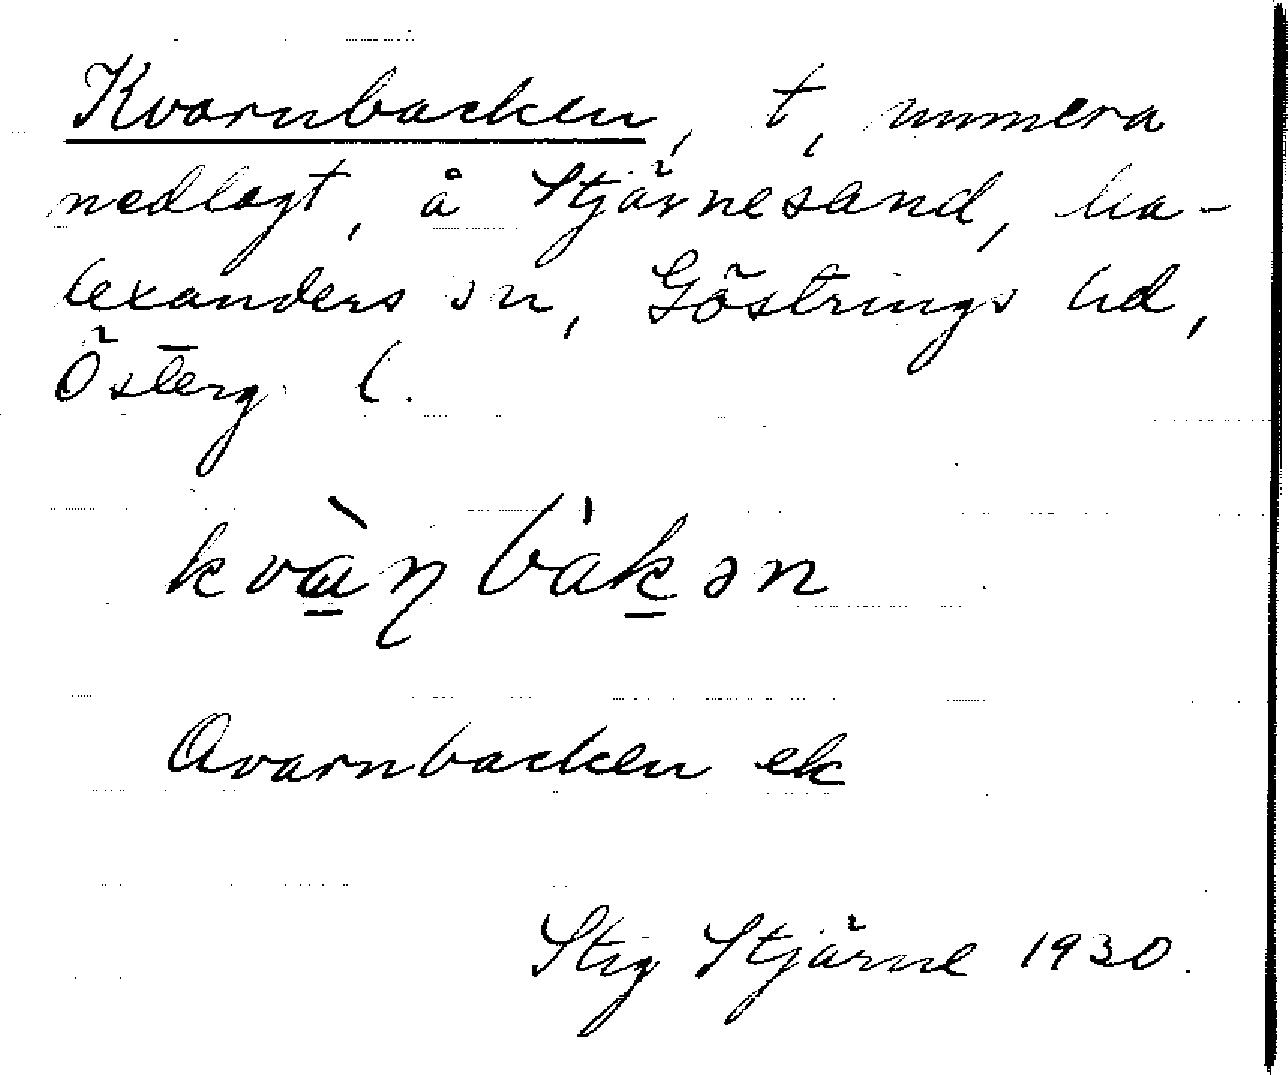 Kvarnbacken, t, numera
nedlagt, å Stjärnesand, Ka-
lexanders sn, Göstrings hd,
Österg. l.
kvàṇbàkən
Qvarnbacken ek
Stig Stjärne 1930.